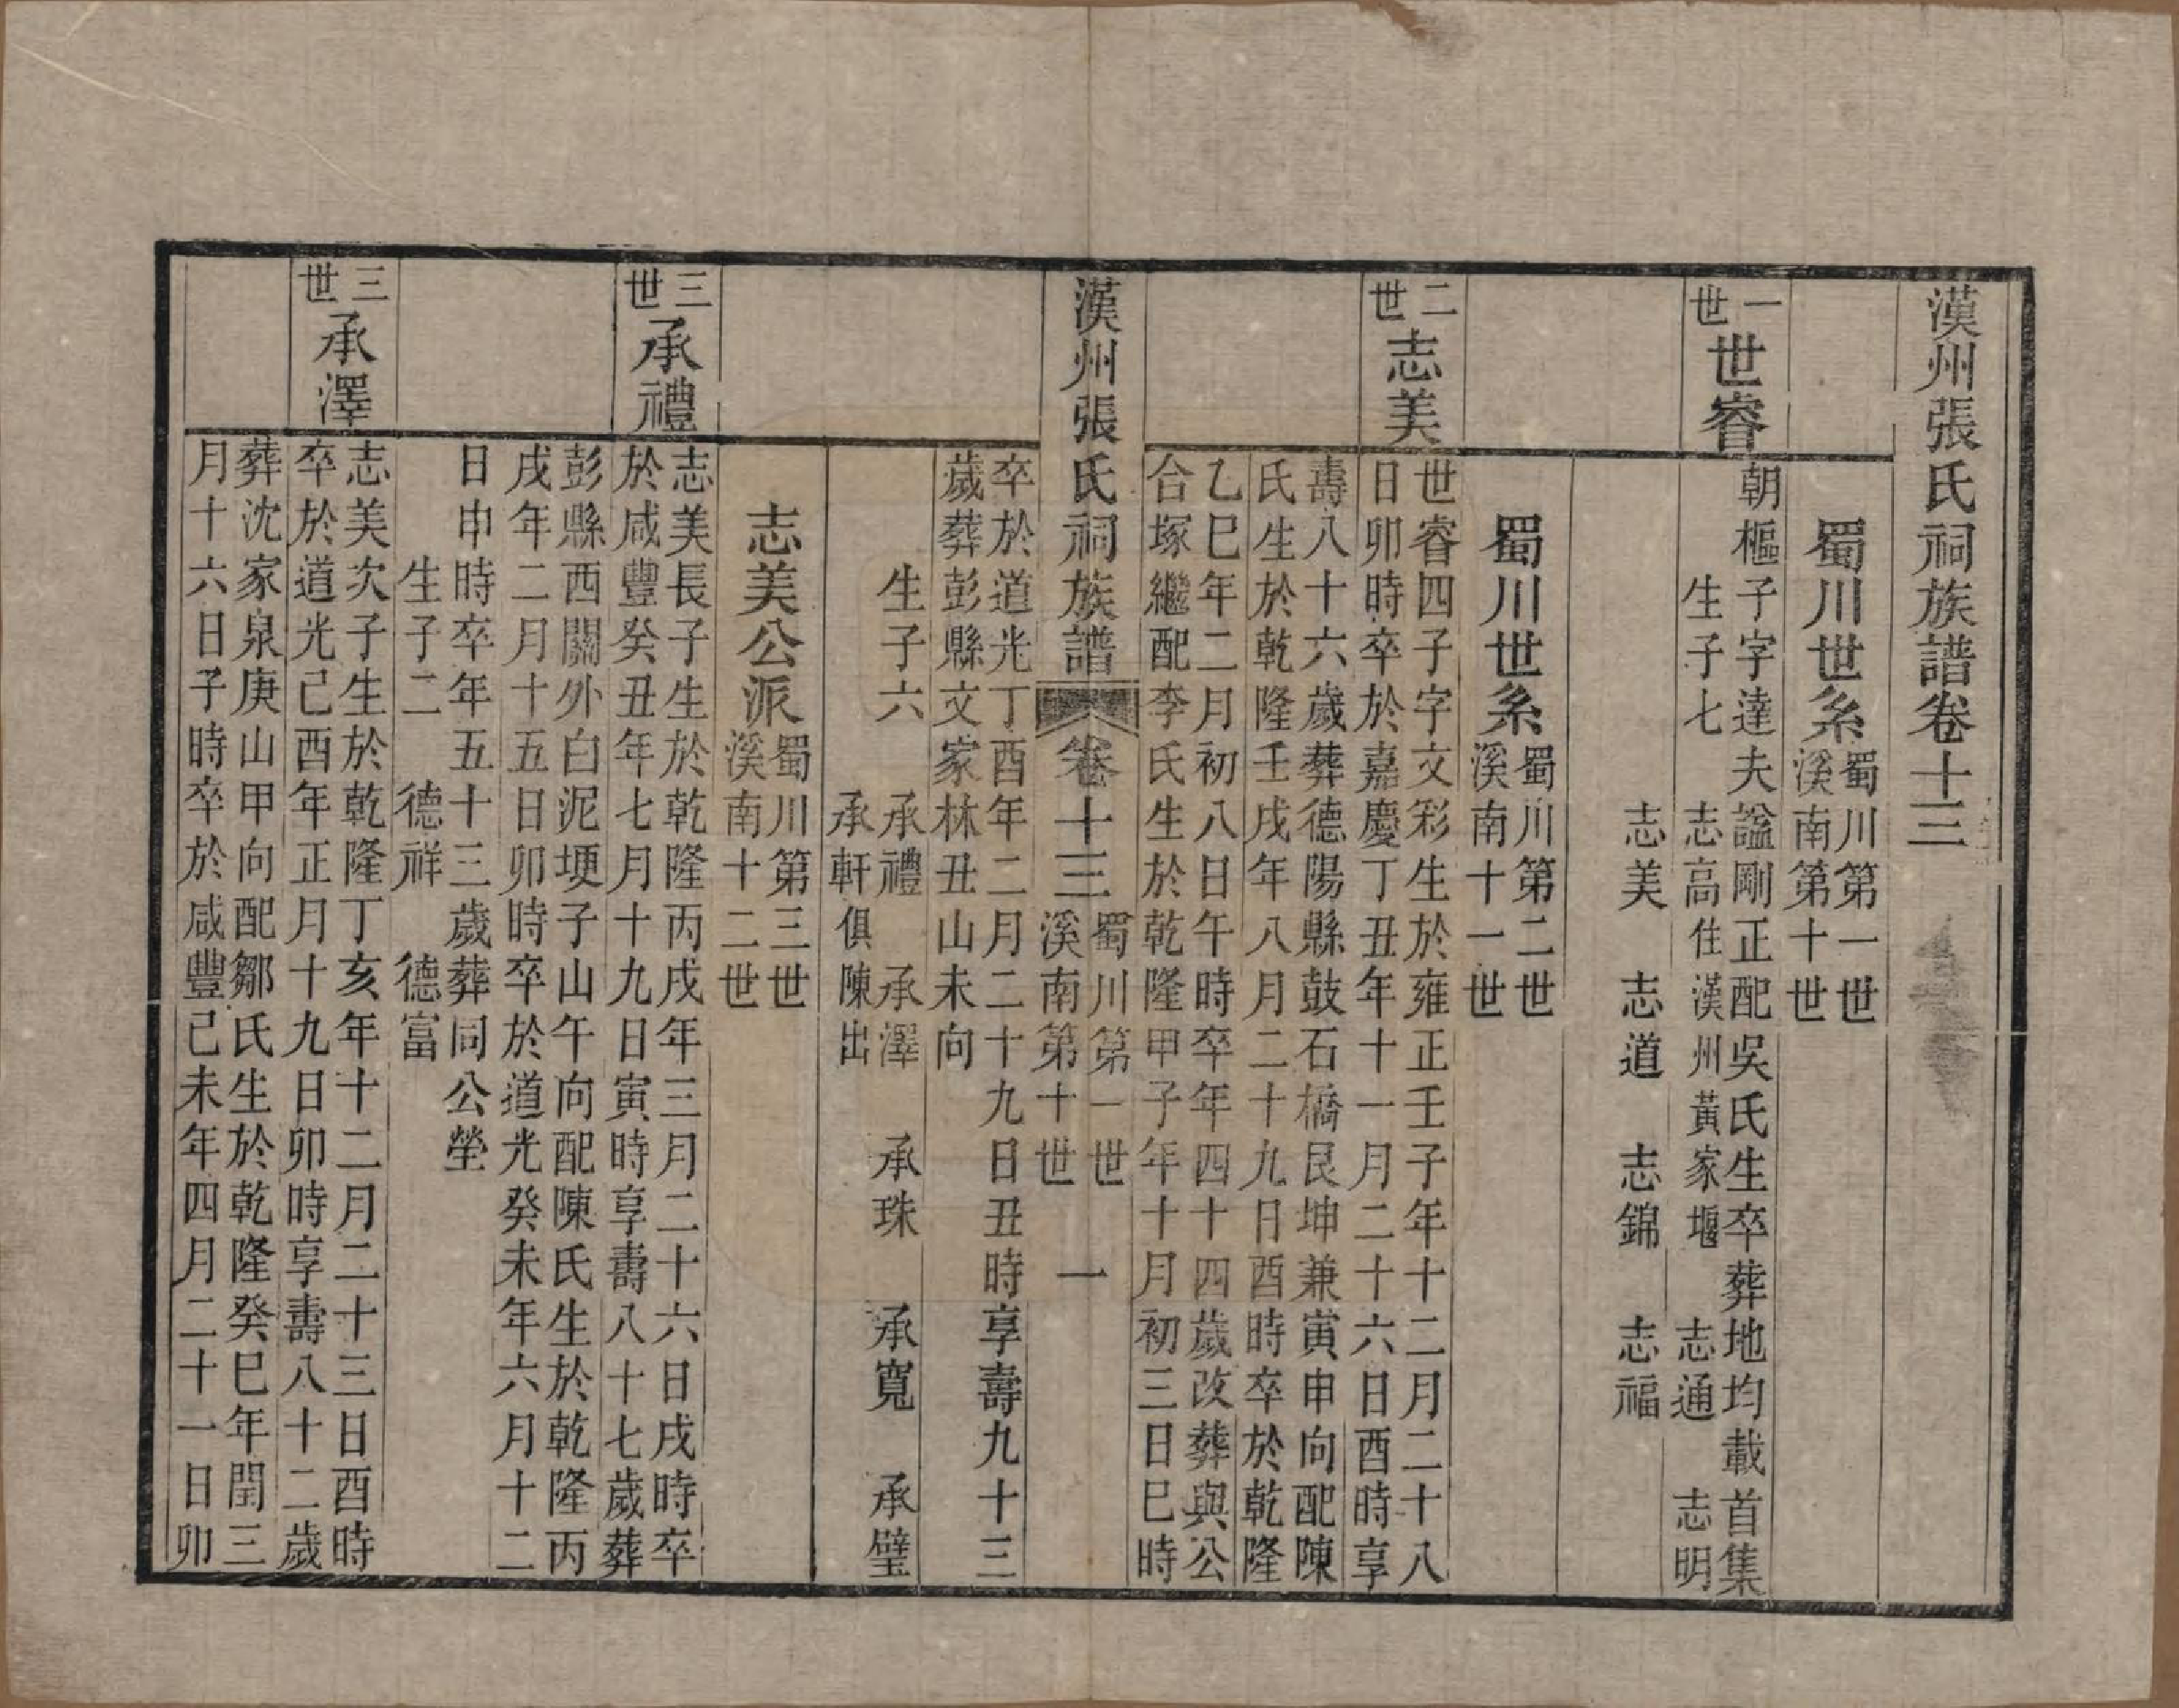 漢州張氏祠族譜卷十三
蜀川世系
蜀川第一世
溪南第十世
一世
世睿
朝樞子字達夫諡剛正配吳氏生卒葬地均載首集
生子七　志高住漢州黃家堰　志通　志明
志美　志道　志錦　志福
蜀川世系
蜀川第二世
溪南十一世
二世
志美
世睿四子字文彩生於雍正壬子年十二月二十八
日卯時卒於嘉慶丁丑年十一月二十六日酉時享
壽八十六歲葬德陽縣鼓石橋艮坤兼寅申向配陳
氏生於乾隆壬戌年八月二十九日酉時卒於乾隆
乙巳年二月初八日午時卒年四十四歲改葬與公
合塚繼配李氏生於乾隆甲子年十月初三日巳時
漢州張氏祠族譜　卷十三
蜀川第一世
溪南第十世
一
卒於道光丁酉年二月二十九日丑時享壽九十三
歲葬彭縣文家林丑山未向
生子六　承禮　承澤　承珠　承寬　承璧
承軒俱陳出
志美公派
蜀川第三世
溪南十二世
三世
承禮
志美長子生於乾隆丙戌年三月二十六日戌時卒
於咸豐癸丑年七月十九日寅時享壽八十七歲葬
彭縣西關外白泥埂子山午向配陳氏生於乾隆丙
戌年二月十五日卯時卒於道光癸未年六月十二
日申時卒年五十三歲葬同公塋
生子二　德祥　德富
三世
承澤
志美次子生於乾隆丁亥年十二月二十三日酉時
卒於道光己酉年正月十九日卯時享壽八十二歲
葬沈家泉庚山甲向配鄒氏生於乾隆癸巳年閏三
月十六日子時卒於咸豐己未年四月二十一日卯